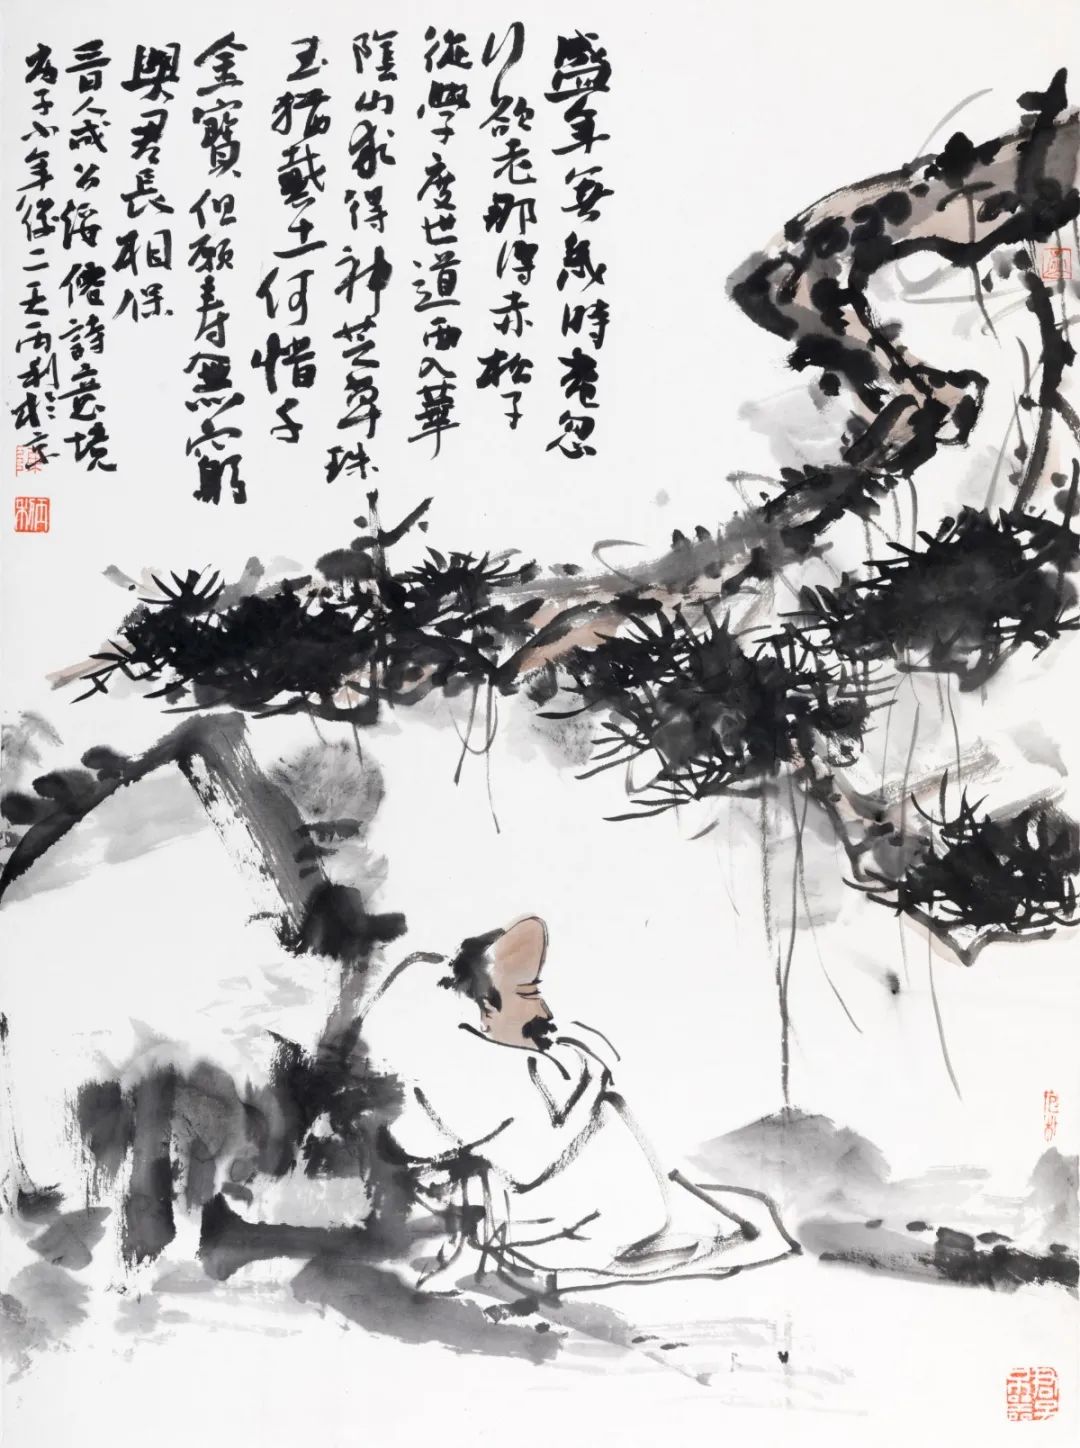 盛年無幾時奄忽
行欲老那得赤松子
從學度世道西入華
陰山求得神芝草珠
玉猶戴土何惜千
金寶但願壽無窮
與君長相保
晋人成公綏僊詩意境
庚子小年後二天丙利於京
丙利